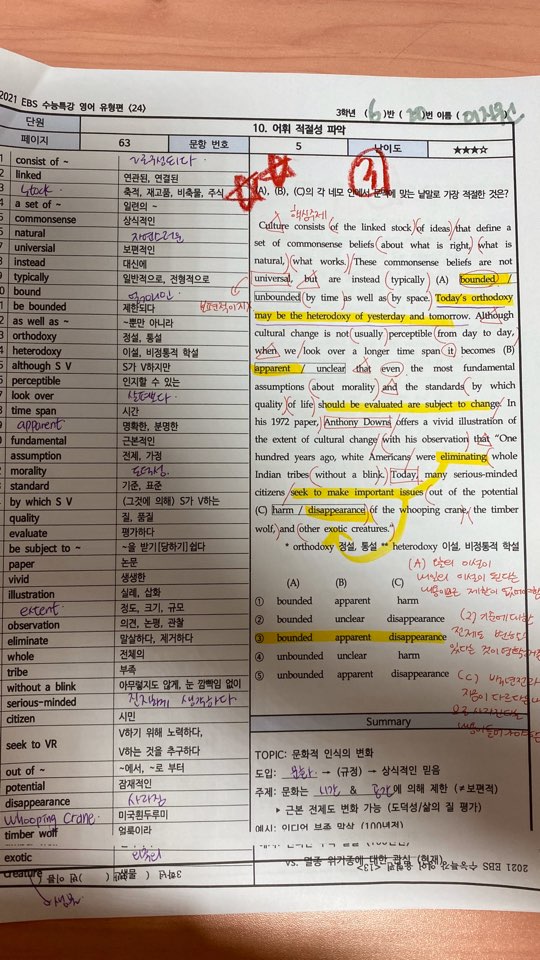 2021 EBS 수능특강 영어 유형편 <24>
3학년 ( 6 )반 ( )번 이름 (
단원
10. 어휘 적절성 파악
페이지 63 문항 번호 5 난이도 ★★★☆
consist of ~
linked 연관된, 연결된
stock 축적, 재고품, 비축물, 주식
a set of ~ 일련의 ~
commonsense 상식적인
natural 자연스러운
universial 보편적인
instead 대신에
typically 일반적으로, 전형적으로
bound
be bounded 제한되다
as well as ~ ~뿐만 아니라
orthodoxy 정설, 통설
heterodoxy 이설, 비정통적 학설
although S V S가 V하지만
perceptible 인지할 수 있는
look over 살펴보다
time span 시간
apparent 명확한, 분명한
fundamental 근본적인
assumption 전제, 가정
morality 도덕성
standard 기준, 표준
by which S V (그것에 의해) S가 V하는
quality 질, 품질
evaluate 평가하다
be subject to ~ ~을 받기[당하기]쉽다
paper 논문
vivid 생생한
illustration 실례, 삽화
extent 정도, 크기, 규모
observation 의견, 논평, 관찰
eliminate 말살하다, 제거하다
whole 전체의
tribe 부족
without a blink 아무렇지도 않게, 눈 깜빡임 없이
serious-minded 진지하게 생각하다
citizen 시민
seek to VR V하기 위해 노력하다,
V하는 것을 추구하다
out of ~ ~에서, ~로 부터
potential 잠재적인
disappearance 사라짐
whooping crane 미국흰두루미
timber wolf 얼룩이라
exotic
creature 생물
③
(A), (B), (C)의 각 네모 안에서 문맥에 맞는 낱말로 가장 적절한 것은?
핵심주제
Culture consists of the linked stock of ideas that define a
set of commonsense beliefs about what is right, what is
natural, what works. These commonsense beliefs are not
universal, but are instead typically (A) bounded /
unbounded by time as well as by space. Today's orthodoxy
may be the heterodoxy of yesterday and tomorrow. Although
cultural change is not usually perceptible from day to day,
when we look over a longer time span it becomes (B)
apparent / unclear that even the most fundamental
assumptions about morality and the standards by which
quality of life should be evaluated are subject to change. In
his 1972 paper, Anthony Downs offers a vivid illustration of
the extent of cultural change with his observation that "One
hundred years ago, white Americans were eliminating whole
Indian tribes without a blink. Today, many serious-minded
citizens seek to make important issues out of the potential
(C) harm / disappearance of the whooping crane, the timber
wolf, and other exotic creatures."
* orthodoxy 정설, 통설 ** heterodoxy 이설, 비정통적 학설
(A) (B) (C)
① bounded apparent harm
② bounded unclear disappearance
③ bounded apparent disappearance
④ unbounded unclear harm
⑤ unbounded apparent disappearance
Summary
TOPIC: 문화적 인식의 변화
도입: 문화 → (규정) → 상식적인 믿음
주제: 문화는 시간 & 공간에 의해 제한 (≠보편적)
▸ 근본 전제도 변화 가능 (도덕성/삶의 질 평가)
예시: 인디언 부족 말살 (100년전)
vs. 멸종 위기종에 대한 관심 (현재)